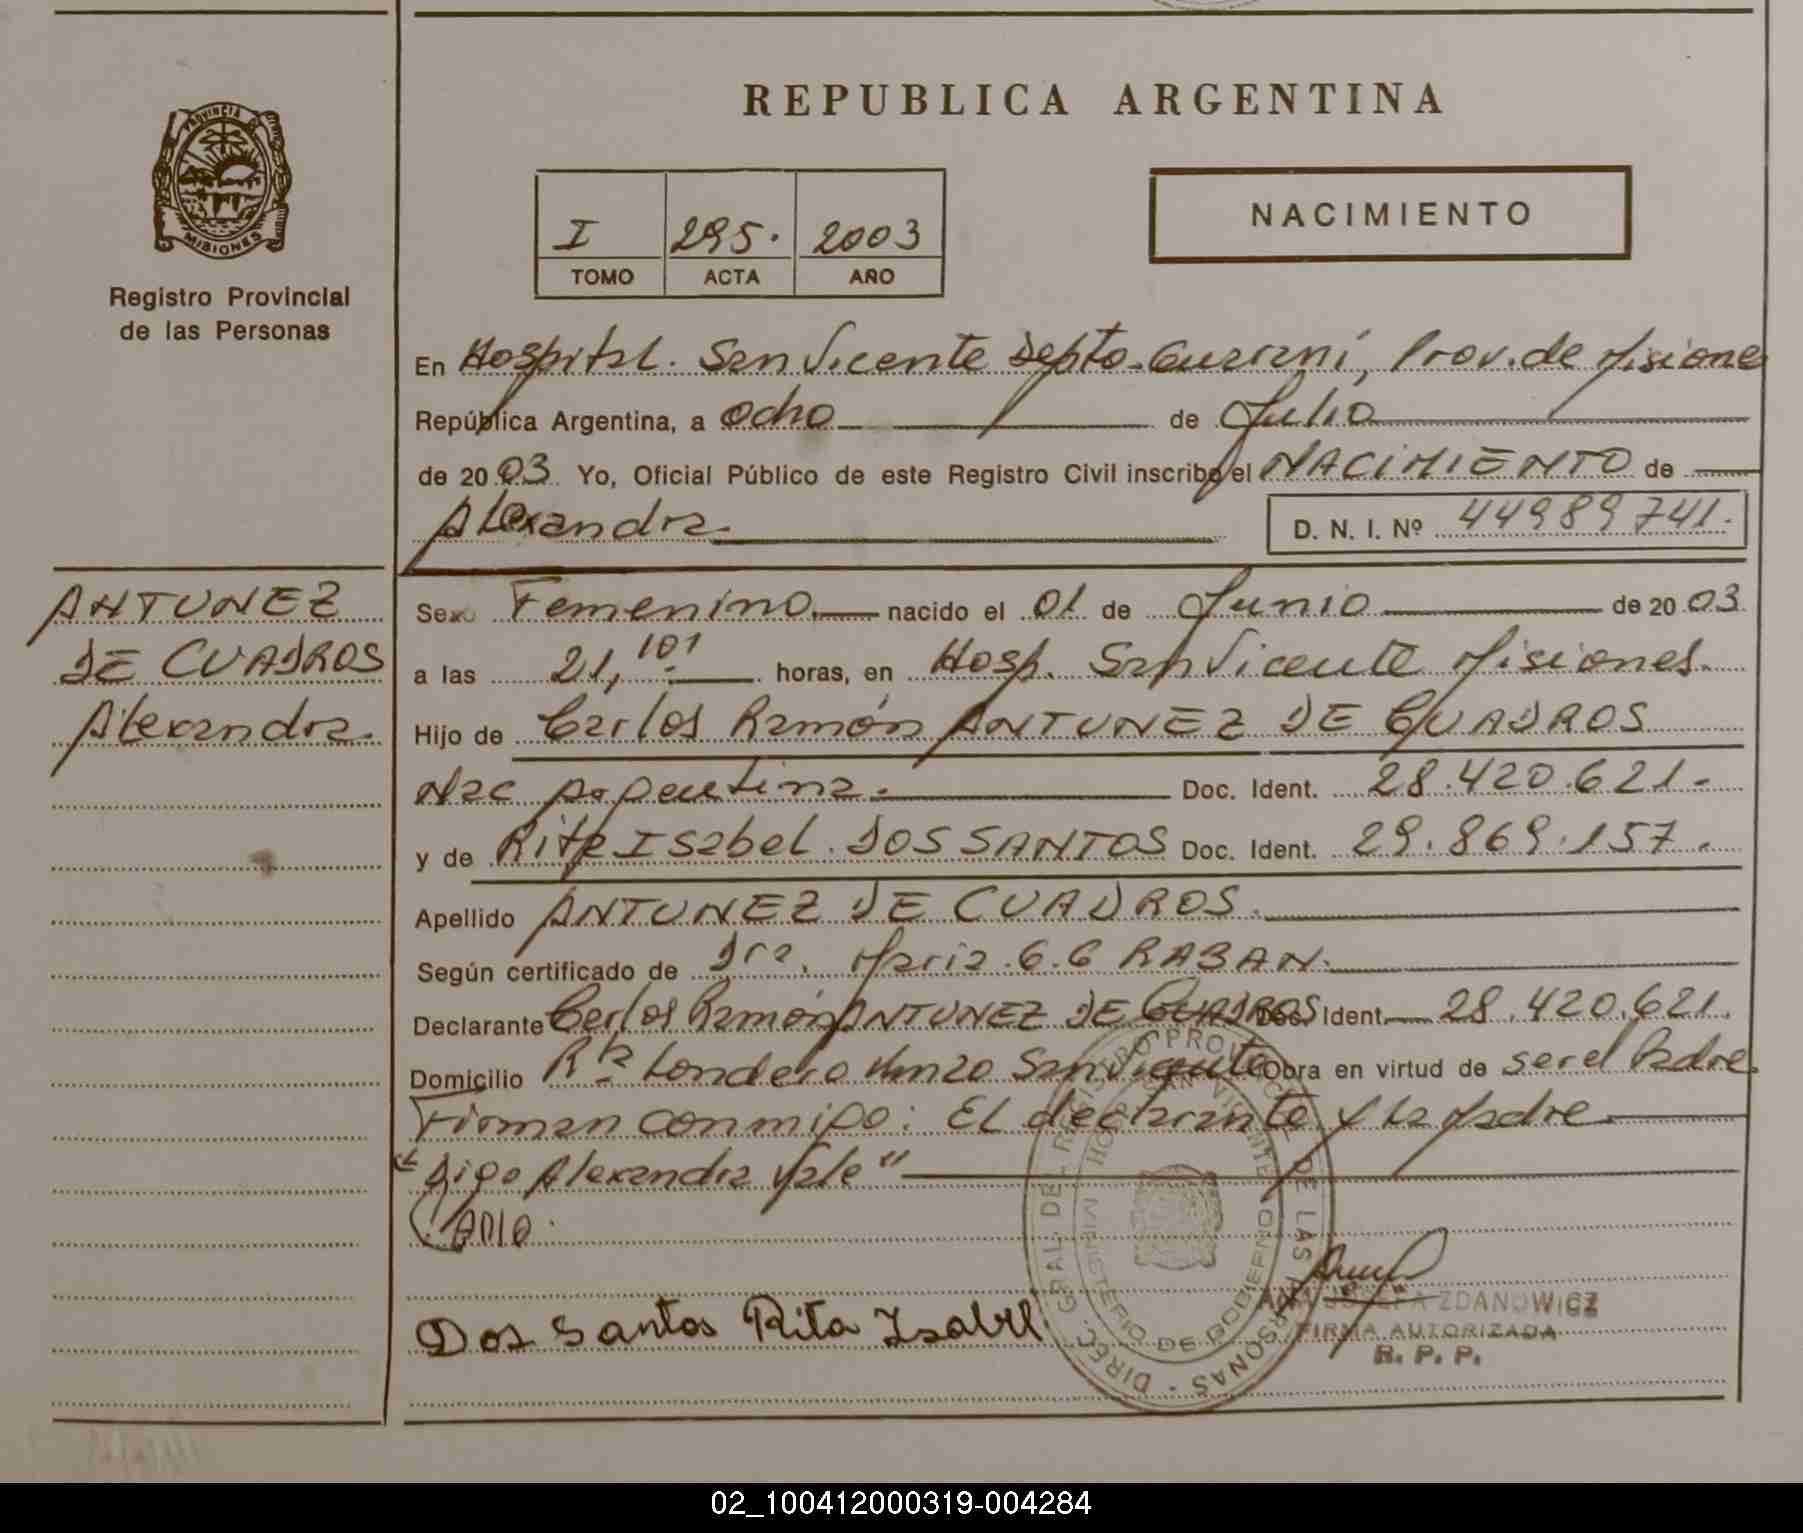 REPUBLICA ARGENTINA
PROVINCIA DE
MISIONES
Registro Provincial
de las Personas
I 295. 2003
TOMO ACTA AÑO
NACIMIENTO
En Hospital. San Vicente Depto. Guaraní, Prov. de Misiones
República Argentina, a ocho de Julio
de 2003. Yo, Oficial Público de este Registro Civil inscribo el NACIMIENTO de
Alexandra. D. N. I. Nº 44989741.
ANTUNEZ
DE CUADROS
Alexandra.
Sexo Femenino. nacido el 01 de Junio de 2003
a las 21,10' horas, en Hosp. San Vicente Misiones.
Hijo de Carlos Ramón ANTUNEZ DE CUADROS
Nac Argentina. Doc. Ident. 28.420.621.
y de Rita Isabel DOS SANTOS Doc. Ident. 29.869.157.
Apellido ANTUNEZ DE CUADROS.
Según certificado de Dra. Maria G. G RABAN.
Declarante Carlos Ramón ANTUNEZ DE CUADROS Doc. Ident. 28.420.621.
Domicilio Londero Km 20 San Vicente Obra en virtud de ser el Padre.
Firman conmigo: El declarante y la Madre
"Digo Alexandra Vale"
Dos Santos Rita Isabel
DIREC. GRAL. DEL REGISTRO PROVINCIAL DE LAS PERSONAS
MINISTERIO DE GOBIERNO
JOSEFA ZDANOWICZ
FIRMA AUTORIZADA
R. P. P.
02_100412000319-004284